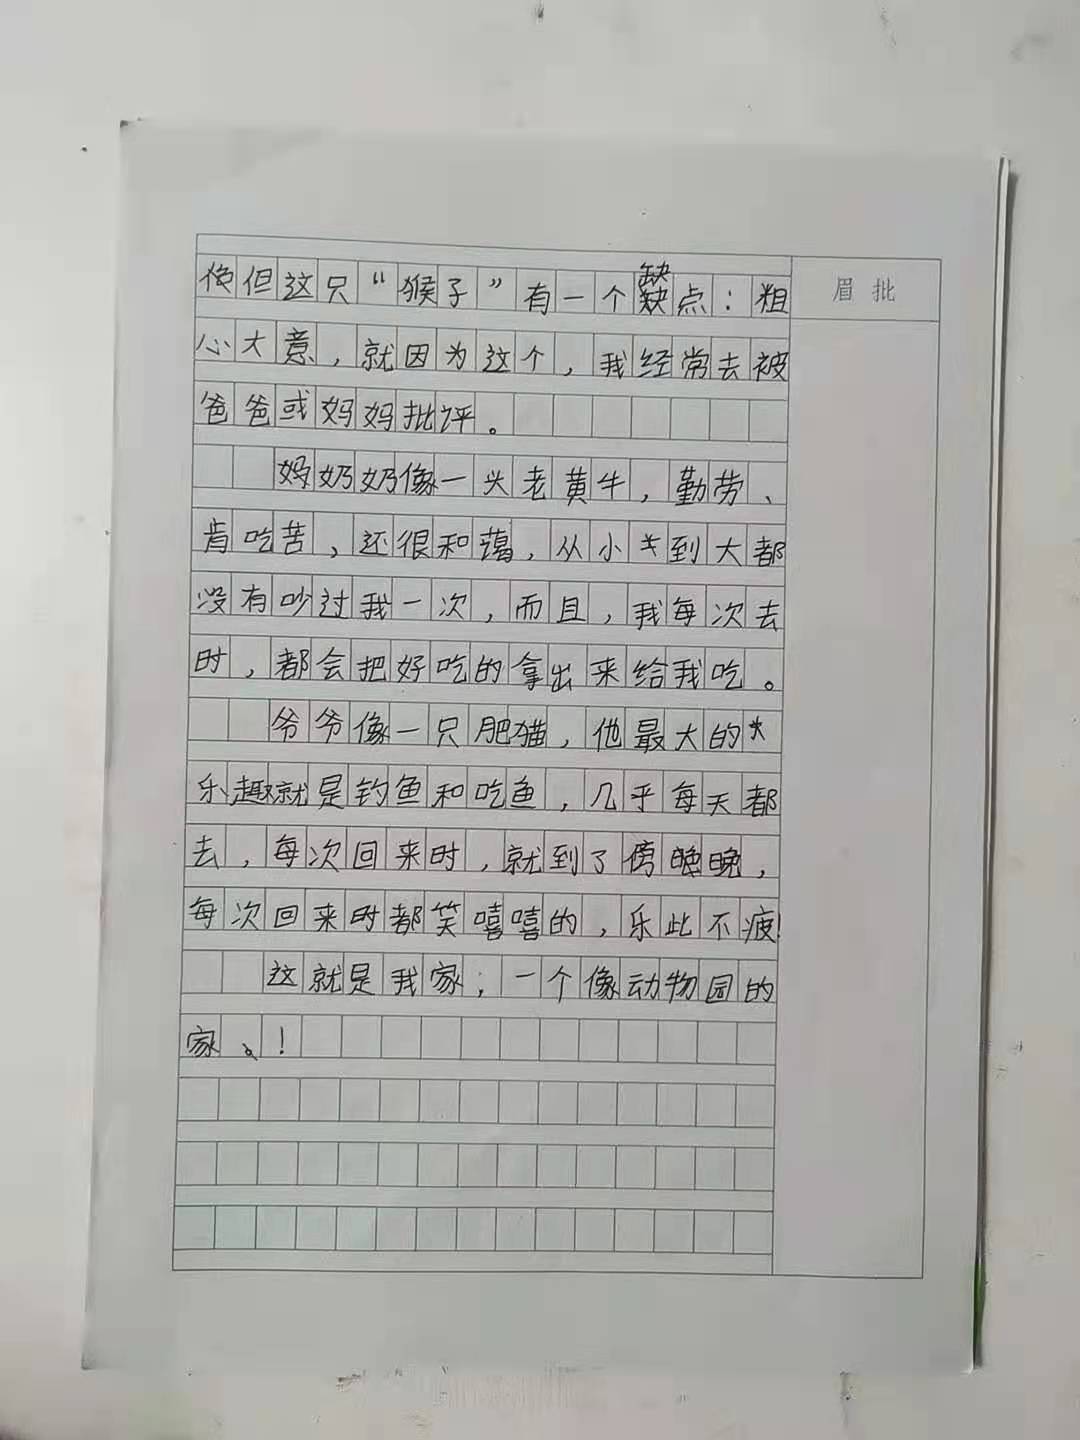 但这只“猴子”有一个缺点：粗
眉批
心大意，就因为这个，我经常去被
爸爸或妈妈批评。
奶奶像一头老黄牛，勤劳、
肯吃苦，还很和蔼，从小到大都
没有吵过我一次，而且，我每次去
时，都会把好吃的拿出来给我吃。
爷爷像一只肥猫，他最大的
乐趣就是钓鱼和吃鱼，几乎每天都
去，每次回来时，就到了傍晚，
每次回来时都笑嘻嘻的，乐此不疲！
这就是我家；一个像动物园的
家！